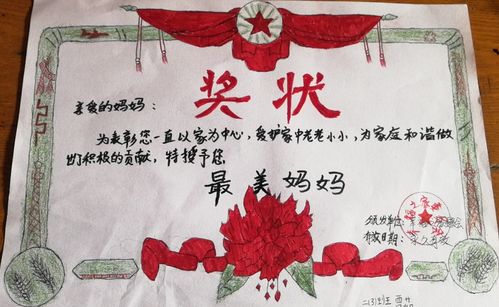 奖状
亲爱的妈妈：
为表彰您一直以家为中心，爱护家中老老小小，为家庭和谐做
出了积极的贡献，特授予您
最美妈妈
颁发单位：
有效日期：永久有效
二(3)班